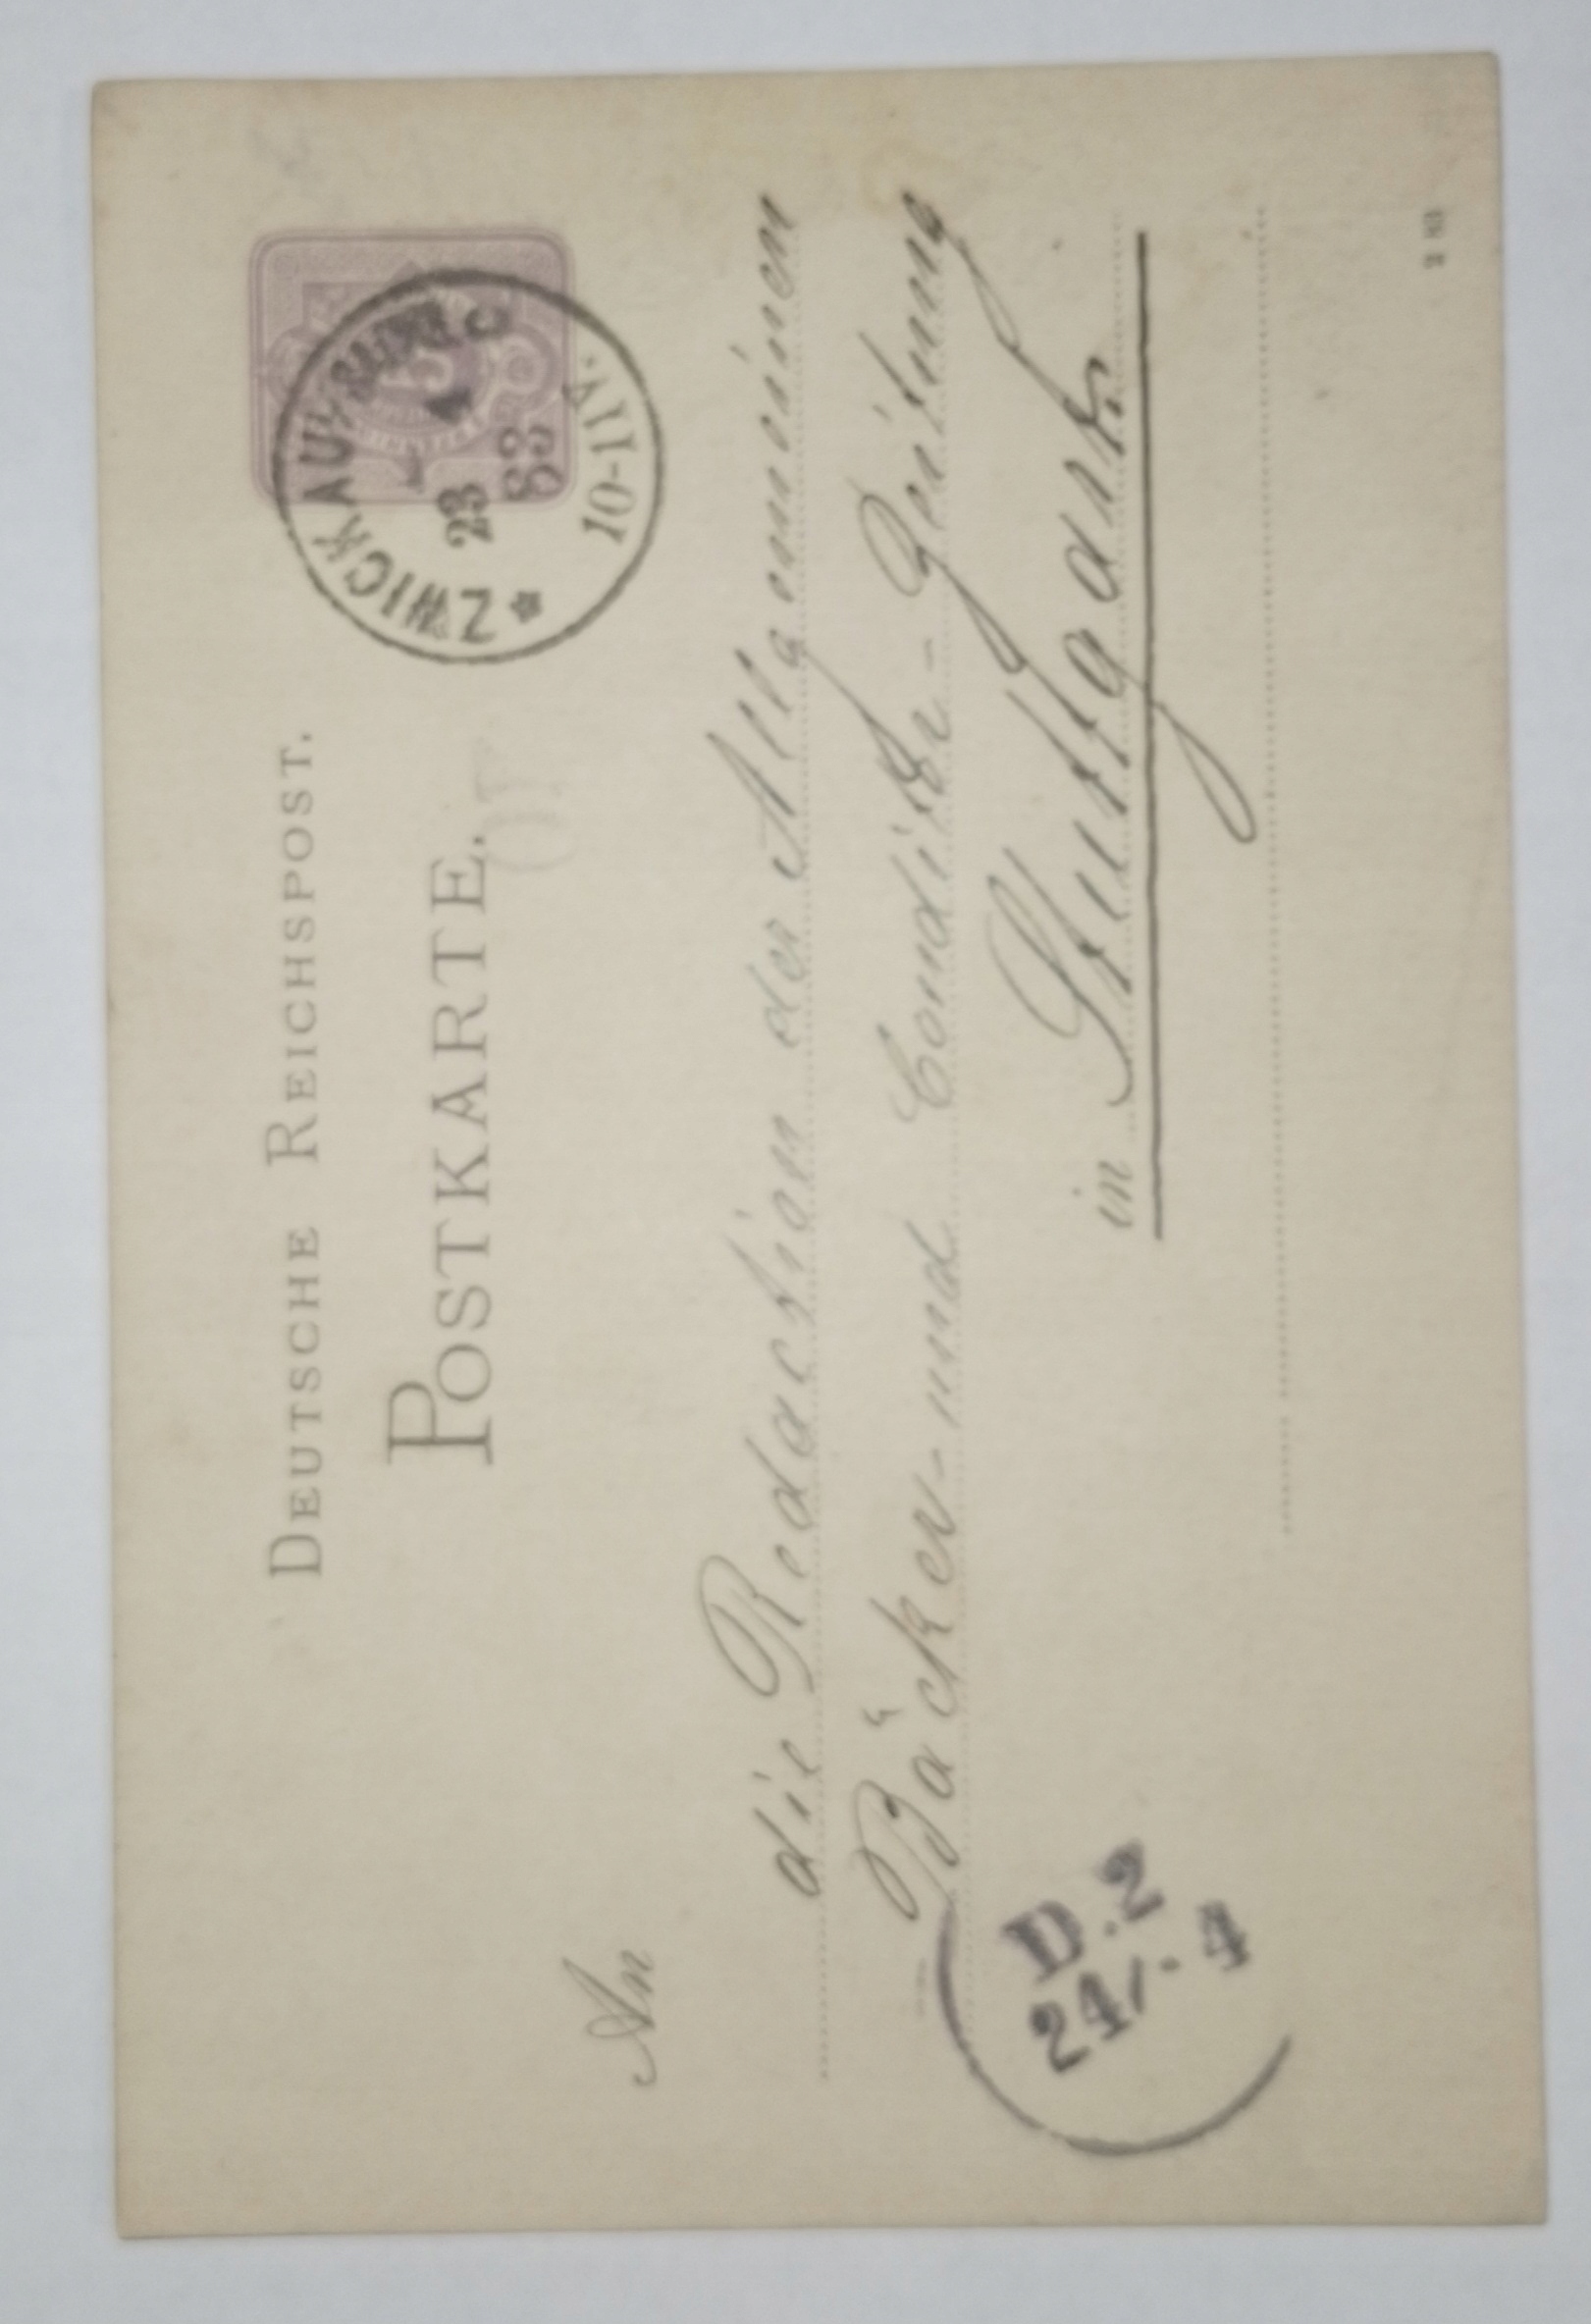 DEUTSCHE REICHSPOST.
POSTKARTE.
ZWICKAU
23 4
83
10-11V.
An
die Redaction der Allgemeinen
Bäcker- und Conditor-Zeitung
in Stuttgart
D.2
24/·4